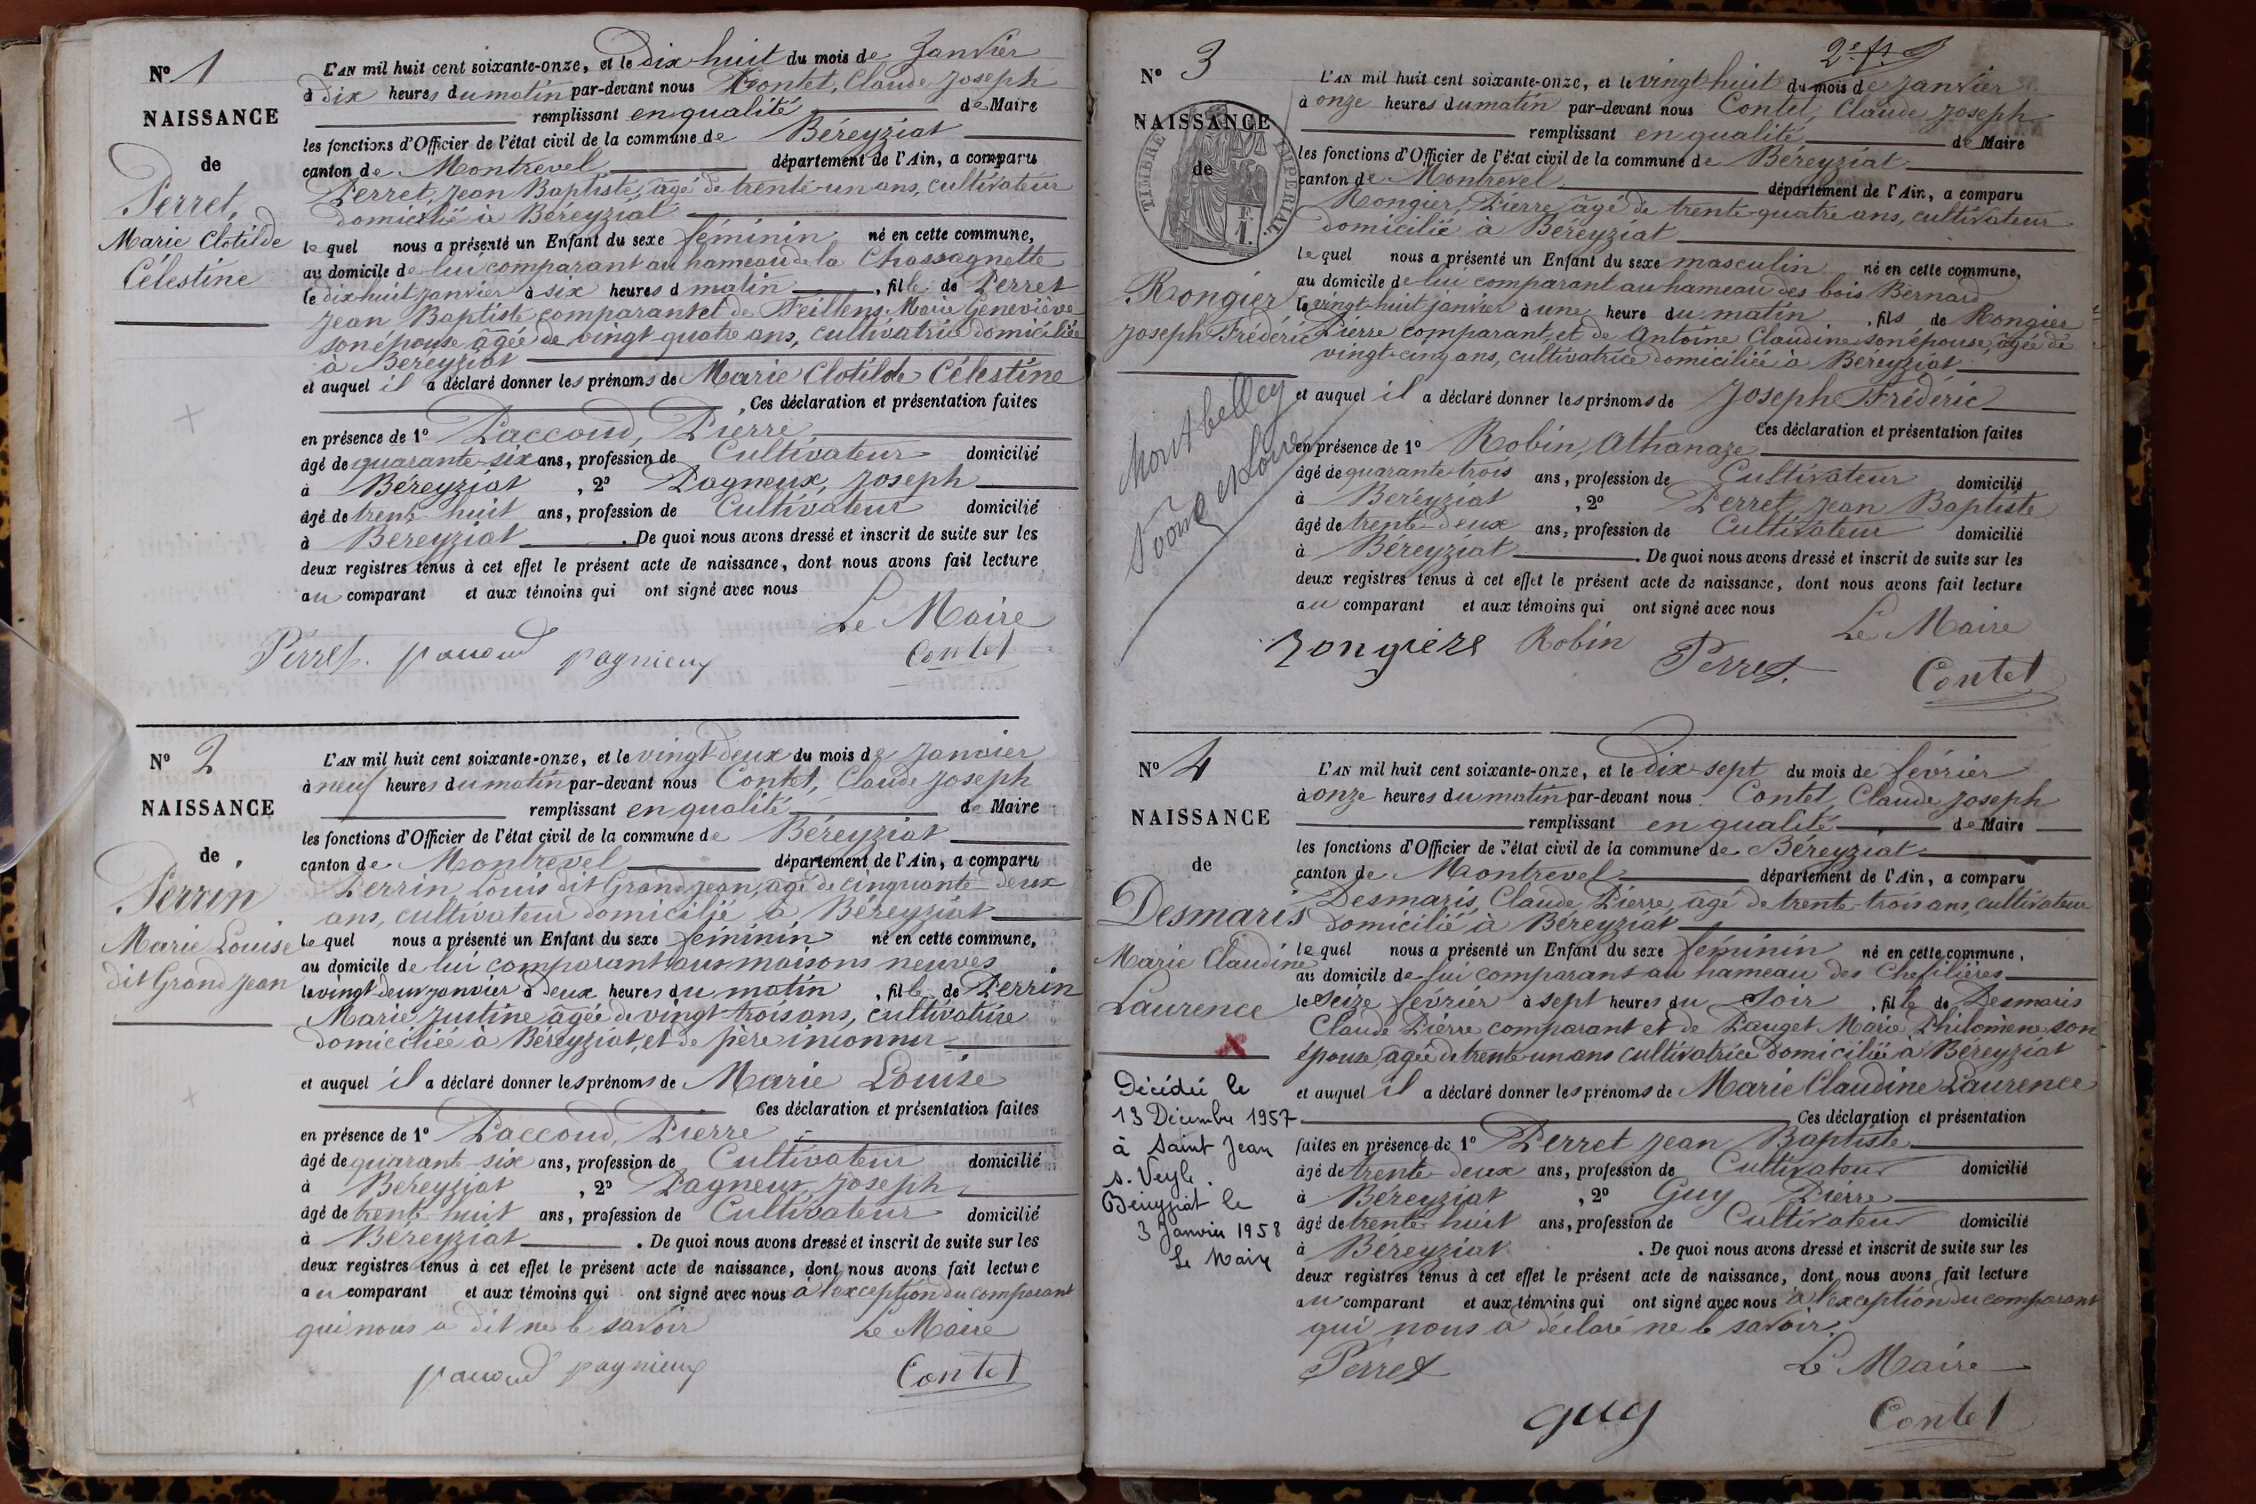 N° 1
NAISSANCE
de
Perret,
Marie Clotilde
Célestine
L'AN mil huit cent soixante-onze, et le dix-huit du mois de Janvier
à dix heures du matin par-devant nous Contet, Claude Joseph
remplissant en qualité de Maire
les fonctions d'Officier de l'état civil de la commune de Béreyziat
canton de Montrevel département de l'Ain, a comparu
Perret, Jean Baptiste, âgé de trente-un ans, cultivateur
domicilié à Béreyziat
le quel nous a présenté un Enfant du sexe féminin né en cette commune,
au domicile de lui comparant au hameau de la Chassagnette
le dix huit janvier à six heures d matin, fille de Perret
Jean Baptiste comparant et de Feillens, Marie Geneviève
son épouse âgée de vingt-quatre ans, cultivatrice domiciliée
à Béreyziat
et auquel il a déclaré donner les prénoms de Marie Clotilde Célestine
, Ces déclaration et présentation faites
en présence de 1° Paccoud, Pierre,
âgé de quarante-six ans, profession de Cultivateur domicilié
à Béreyziat, 2° Pagneux, Joseph
âgé de trente-huit ans, profession de Cultivateur domicilié
à Béreyziat. De quoi nous avons dressé et inscrit de suite sur les
deux registres tenus à cet effet le présent acte de naissance, dont nous avons fait lecture
au comparant et aux témoins qui ont signé avec nous
Le Maire
Perret. paccoud pagnieux Contet
N° 2
NAISSANCE
de
Perrin
Marie Louise
dit Grand Jean
L'AN mil huit cent soixante-onze, et le vingt-deux du mois de Janvier
à neuf heures du matin par-devant nous Contet, Claude Joseph
remplissant en qualité de Maire
les fonctions d'Officier de l'état civil de la commune de Béreyziat
canton de Montrevel département de l'Ain, a comparu
Perrin, Louis dit Grand Jean, âgé de cinquante-deux
ans, cultivateur domicilié à Béreyziat
le quel nous a présenté un Enfant du sexe féminin né en cette commune,
au domicile de lui comparant aux maisons neuves
le vingt-deux janvier à deux heures du matin, fille de Perrin
Marie Justine âgée de vingt-trois ans, cultivatrice
domiciliée à Béreyziat, et de père inconnu
et auquel il a déclaré donner les prénoms de Marie Louise
Ces déclaration et présentation faites
en présence de 1° Paccoud, Pierre
âgé de quarante-six ans, profession de Cultivateur domicilié
à Béreyziat, 2° Pagneux, Joseph
âgé de trente-huit ans, profession de Cultivateur domicilié
à Béreyziat. De quoi nous avons dressé et inscrit de suite sur les
deux registres tenus à cet effet le présent acte de naissance, dont nous avons fait lecture
au comparant et aux témoins qui ont signé avec nous à l'exception du comparant
qui nous a dit ne le savoir Le Maire
paccoud pagnieux Contet
N° 3
NAISSANCE
de
TIMBRE IMPÉRIAL
Rongier
Joseph Frédéric
Montbelley
Saône et Loire
L'AN mil huit cent soixante-onze, et le vingt-huit du mois de janvier
à onze heures du matin par-devant nous Contet, Claude Joseph
remplissant en qualité de Maire
les fonctions d'Officier de l'état civil de la commune de Béreyziat
canton de Montrevel département de l'Ain, a comparu
Rongier, Pierre, âgé de trente-quatre ans, cultivateur
domicilié à Béreyziat
le quel nous a présenté un Enfant du sexe masculin né en cette commune,
au domicile de lui comparant au hameau des bois Bernard
le vingt-huit janvier à une heure du matin, fils de Rongier
Pierre comparant, et de Antoine Claudine son épouse, âgée de
vingt-cinq ans, cultivatrice domiciliée à Béreyziat
et auquel il a déclaré donner les prénoms de Joseph Frédéric
Ces déclaration et présentation faites
en présence de 1° Robin, Athanaze
âgé de quarante-trois ans, profession de Cultivateur domicilié
à Béreyziat, 2° Perret, Jean Baptiste
âgé de trente-deux ans, profession de Cultivateur domicilié
à Béreyziat. De quoi nous avons dressé et inscrit de suite sur les
deux registres tenus à cet effet le présent acte de naissance, dont nous avons fait lecture
au comparant et aux témoins qui ont signé avec nous
Le Maire
rongiere Robin Perret. Contet
N° 4
NAISSANCE
de
Desmaris
Marie Claudine
Laurence
Décédée le
13 Décembre 1957
à Saint Jean
s. Veyle.
Béreyziat le
3 Janvier 1958
Le Maire
L'AN mil huit cent soixante-onze, et le dix-sept du mois de février
à onze heures du matin par-devant nous Contet, Claude Joseph
remplissant en qualité de Maire
les fonctions d'Officier de l'état civil de la commune de Béreyziat
canton de Montrevel département de l'Ain, a comparu
Desmaris, Claude Pierre, âgé de trente-trois ans, cultivateur
domicilié à Béreyziat
le quel nous a présenté un Enfant du sexe féminin né en cette commune,
au domicile de lui comparant au hameau des Chefilières
le seize février à sept heures du soir, fille de Desmaris
Claude Pierre comparant et de Pauget Marie Philomène son
épouse, agée de trente-un ans cultivatrice domiciliée à Béreyziat
et auquel il a déclaré donner les prénoms de Marie Claudine Laurence
Ces déclaration et présentation
faites en présence de 1° Perret Jean Baptiste
âgé de trente-deux ans, profession de Cultivateur domicilié
à Béreyziat, 2° Guy Pierre
âgé de trente-huit ans, profession de Cultivateur domicilié
à Béreyziat. De quoi nous avons dressé et inscrit de suite sur les
deux registres tenus à cet effet le présent acte de naissance, dont nous avons fait lecture
au comparant et aux témoins qui ont signé avec nous à l'exception du comparant
qui nous a déclaré ne le savoir.
Perret Le Maire
guy Contet